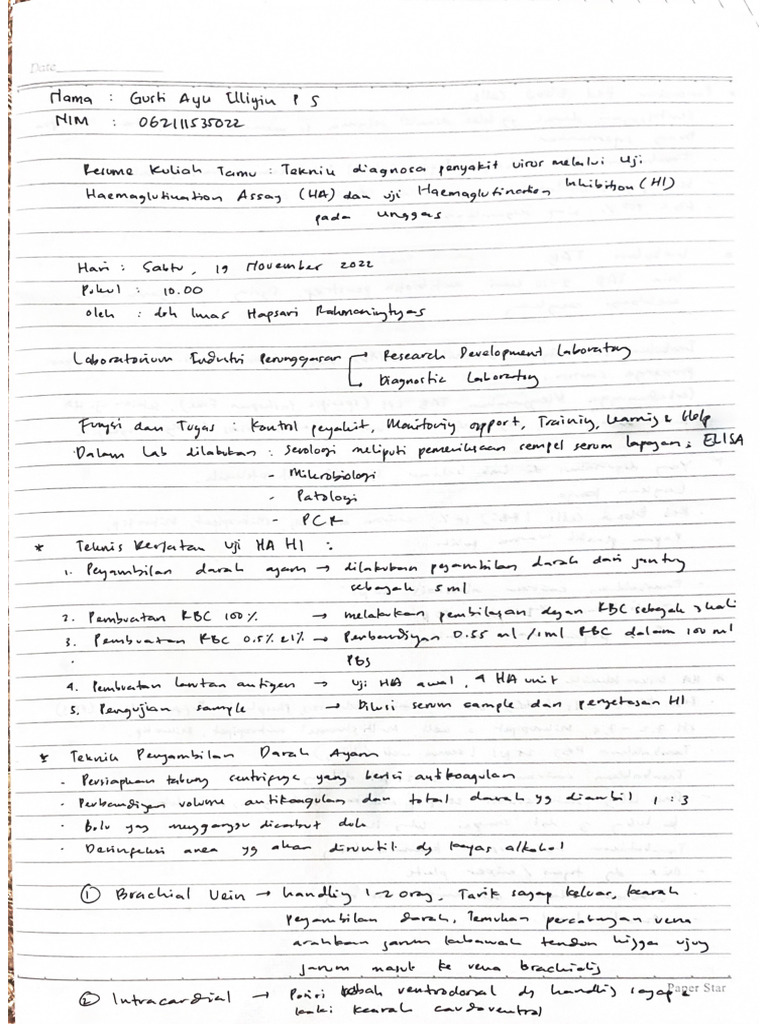 Date
Nama : Gusti Ayu Illiyin P S
NIM : 062111535022
Resume Kuliah Tamu : Teknik diagnosa penyakit virus melalui Uji
Haemaglutination Assay (HA) dan uji Haemaglutination Inhibition (HI)
pada Unggas
Hari : Sabtu, 19 November 2022
Pukul : 10.00
oleh : drh Imas Hapsari Rahmaningtyas
Laboratorium Industri Perunggasan → Research Development Laboratory
→ Diagnostic Laboratory
Fungsi dan Tugas : Kontrol peyakit, Monitoring support, Training, Learning & Help
Dalam Lab dilakukan : Serologi meliputi pemeriksaan sempel serum lapangan : ELISA
- Mikrobiologi
- Patologi
- PCR
* Teknis Kerjatan Uji HA HI :
1. Pengambilan darah ayam → dilakukan pengambilan darah dari jantung
sebanyak 5 ml
2. Pembuatan RBC 100% → melakukan pembilasan dengan RBC sebanyak 3 kali
3. Pembuatan RBC 0.5% & 1% → Perbandingan 0.55 ml / 1 ml RBC dalam 100 ml
PBS
4. Pembuatan larutan antigen → uji HA awal, 4 HA unit
5. Pengujian sample → Dilusi serum sample dan pengetesan HI
* Teknik Pengambilan Darah Ayam
- Persiapkan tabung centrifuge yang berisi antikoagulan
- Perbandingan volume antikoagulan dan total darah yg diambil 1 : 3
- Bulu yang mengganggu dicabut dulu
- Desinfeksi area yg akan disuntik dg kapas alkohol
① Brachial Vein → handling 1-2 orang, Tarik sayap keluar, kearah
pengambilan darah, Temukan percabangan vena
arahkan jarum kebawah tendon hingga ujung
jarum masuk ke vena brachialis
② Intracardial → Posisi rebah ventrodorsal dg handling sayap &
kaki kearah caudoventral
Paper Star